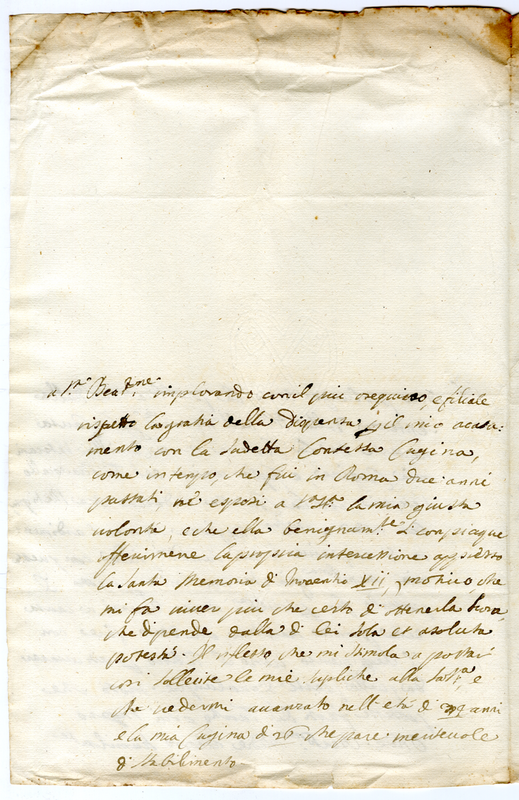 a V.ª Beat.ne implorando con il più ossequioso, e filiale
rispetto la gratia della dispensa p il mio acasa:
mento con la sudetta Contessa Cugina,
come in tempo, che fui in Roma due anni
passati, nè esposi a V.ª S.ª la mia giusta
volontà, e che ella benignam.te si compiaque
offerirmene la propria intercessione appresso
la Santa Memoria di Inocentio XII, motivo, che
mi fa viver più che certo di ottenerla hora,
che dipende dalla di lei sola et asoluta
potestà. Il riflesso, che mi stimola a portar
così sollecite le mie supliche alla Sal.tà, è
che vedermi avanzato nell'età di anni
e la mia Cugina di 26 che pare meritevole
di stabilimento